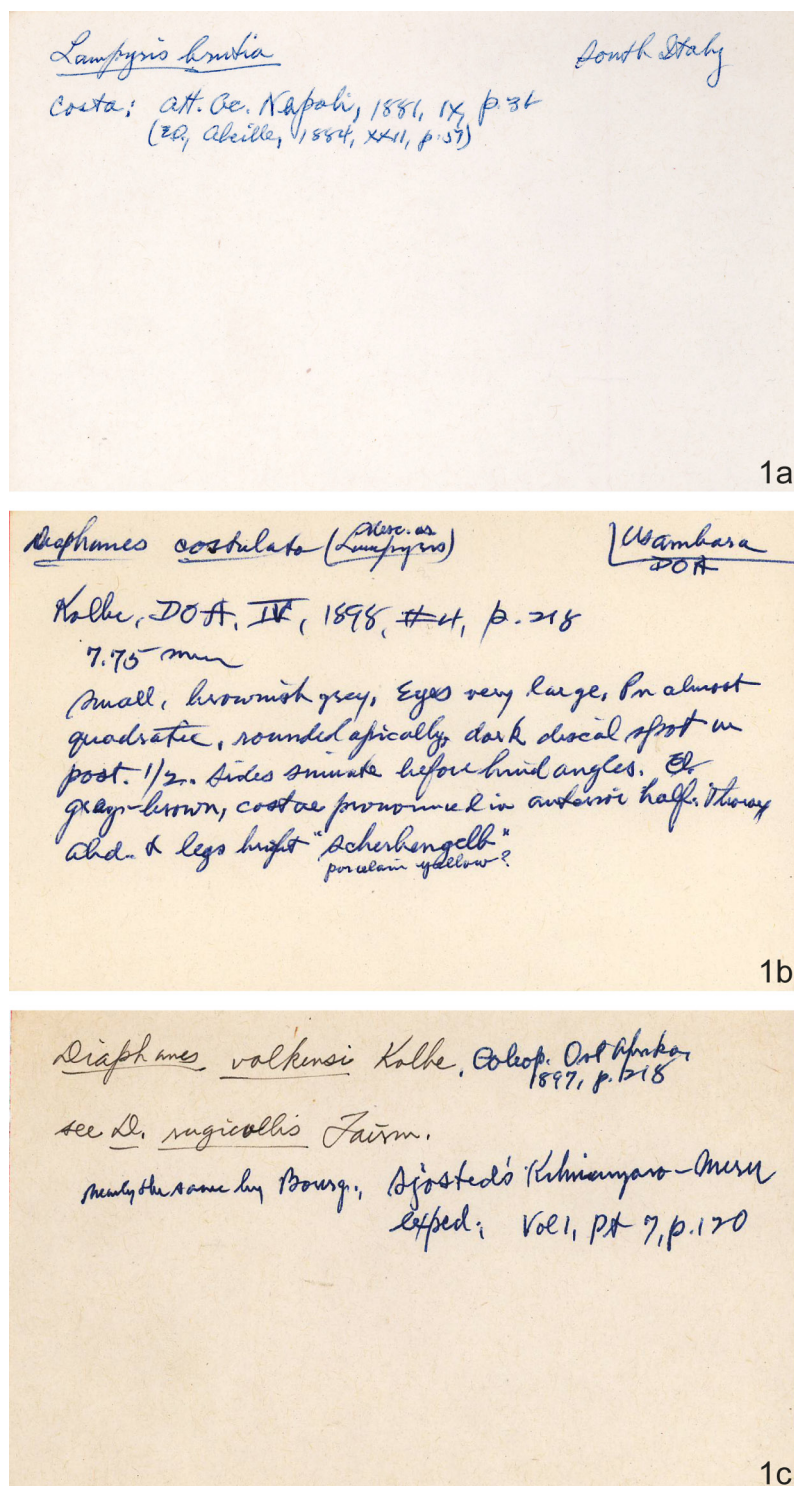 Lampyris brutia South Italy
Costa: Att. Ac. Napoli, 1881, IX, p. 36
(ED, Abeille, 1884, XXII, p. 57)
1a
Diaphanes costulata (desc. as Lampyris) Usambara
DOA
Kolbe, DOA, IV, 1898, #4, p. 218
7.75 mm
small, brownish grey, Eyes very large, Pn almost
quadratic, rounded apically, dark discal spot in
post. 1/2. Sides sinuate before hind angles. El.
gray-brown, costae pronounced in anterior half. Thorax
abd. & legs bright "Scherbengelb"
porcelain yellow?
1b
Diaphanes volkensi Kolbe, Coleop. Ost Afrikas,
1897, p. 218
see D. rugicollis Fairm.
nearly the same by Bourg., Sjosted's Kilimanjaro-Meru
exped., Vol 1, Pt 7, p. 120
1c